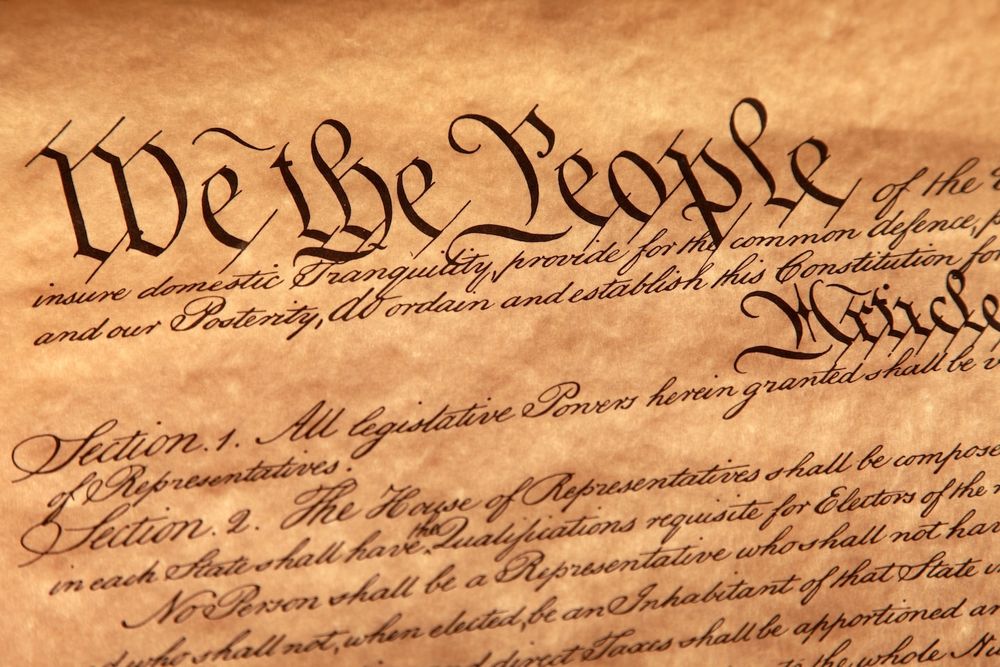 We the People of the
insure domestic Tranquility, provide for the common defence,
and our Posterity, do ordain and establish this Constitution for
Article
Section. 1. All legislative Powers herein granted shall be
of Representatives.
Section. 2. The House of Representatives shall be compose
in each State shall have the Qualifications requisite for Electors of the
No Person shall be a Representative who shall not hav
who shall not, when elected, be an Inhabitant of that State
direct Taxes shall be apportioned
the whole